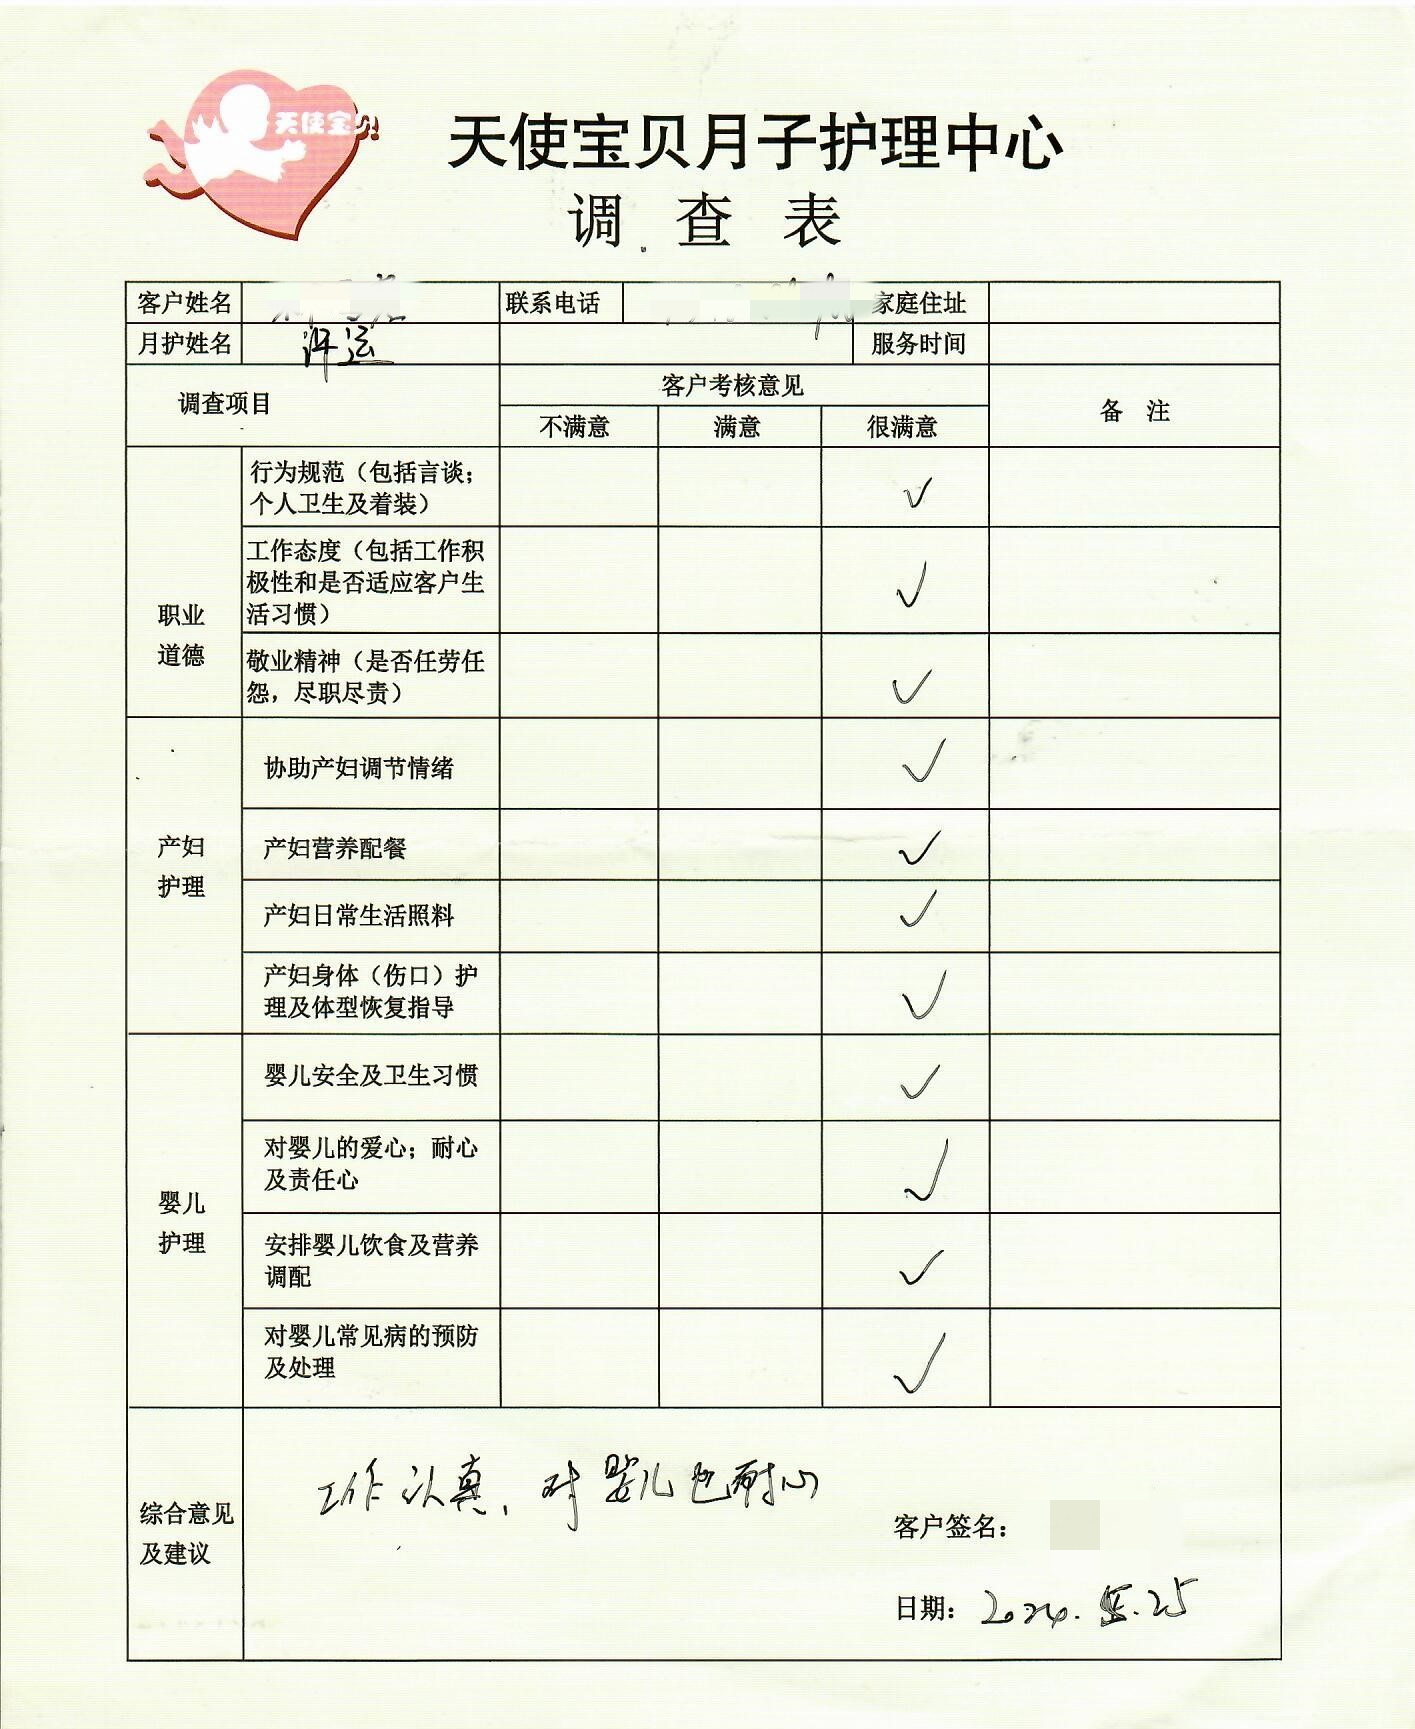 天使宝贝
天使宝贝月子护理中心
调 查 表
客户姓名 联系电话 家庭住址
月护姓名 许运 服务时间
调查项目 客户考核意见 备 注
不满意 满意 很满意
职业
道德
行为规范（包括言谈；
个人卫生及着装） ✓
工作态度（包括工作积
极性和是否适应客户生
活习惯） ✓
敬业精神（是否任劳任
怨，尽职尽责） ✓
产妇
护理
协助产妇调节情绪 ✓
产妇营养配餐 ✓
产妇日常生活照料 ✓
产妇身体（伤口）护
理及体型恢复指导 ✓
婴儿
护理
婴儿安全及卫生习惯 ✓
对婴儿的爱心；耐心
及责任心 ✓
安排婴儿饮食及营养
调配 ✓
对婴儿常见病的预防
及处理 ✓
综合意见
及建议
工作认真，对婴儿也耐心
客户签名：
日期：2024.5.25